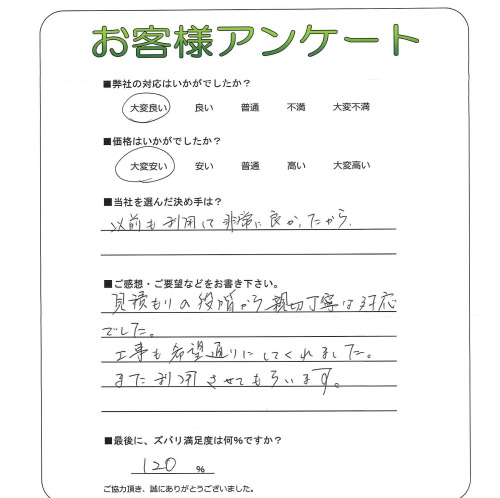 お客様アンケート
■弊社の対応はいかがでしたか？
大変良い 良い 普通 不満 大変不満
■価格はいかがでしたか？
大変安い 安い 普通 高い 大変高い
■当社を選んだ決め手は？
以前も利用して非常に良かったから、
■ご感想・ご要望などをお書き下さい。
見積もりの段階から親切丁寧な対応
でした。
工事も希望通りにしてくれました。
また利用させてもらいます。
■最後に、ズバリ満足度は何％ですか？
120 ％
ご協力頂き、誠にありがとうございました。